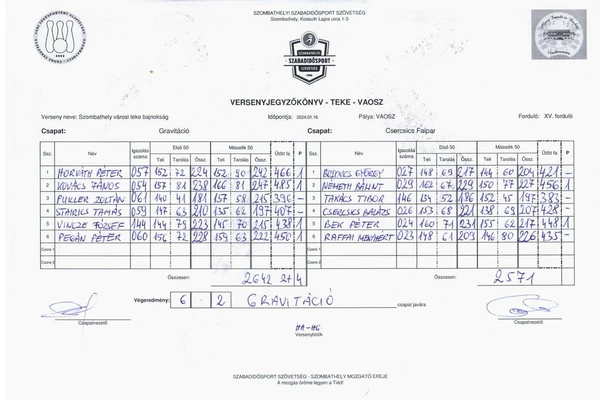 SZOMBATHELYI SZABADIDŐSPORT SZÖVETSÉG
Szombathely, Kossuth Lajos utca 1-3
SZOMBATHELYI
SZABADIDŐSPORT
SZÖVETSÉG
VERSENYJEGYZŐKÖNYV - TEKE - VAOSZ
Verseny neve: Szombathelyi városi teke bajnokság Időpontja: 2024.01.16 Pálya: VAOSZ Forduló: XV. forduló
Csapat: Gravitáció Csapat: Csercsics Faipar
Ssz. Név Igazolás száma Első 50 Második 50 Ütött fa P Ssz. Név Igazolás száma Első 50 Második 50 Ütött fa P
Teli Tarolás Össz. Teli Tarolás Össz. Teli Tarolás Össz. Teli Tarolás Össz.
1 HORVÁTH PÉTER 057 152 72 224 152 90 242 466 1 1 GYÖRGY 027 148 69 217 144 60 204 421 -
2 KOVÁCS JÁNOS 054 157 81 238 166 81 247 485 1 2 NÉMETH BÁLINT 029 162 67 229 150 77 227 456 1
3 FULLER ZOLTÁN 061 140 41 181 157 58 215 396 - 3 TAKÁCS TIBOR 146 134 52 186 152 45 197 383 -
4 TAMÁS 059 147 63 210 135 62 197 407 - 4 CSERCSICS BALÁZS 026 153 68 221 138 69 207 428 -
5 VINCZE JÓZSEF 144 144 79 223 145 70 215 438 1 5 BEK PÉTER 024 160 71 231 155 62 217 448 1
6 PEGÁN PÉTER 060 156 72 228 159 63 222 450 1 6 RAFFAI MENYHÉRT 023 148 61 209 146 80 226 435 -
Csere 1 Csere 1
Csere 2 Csere 2
Összesen: 2642 2+4 Összesen: 2571
Végeredmény: 6 - 2 GRAVITÁCIÓ csapat javára
Csapatvezető Csapatvezető
HA-HG
Versenybírók
SZABADIDŐSPORT SZÖVETSÉG - SZOMBATHELY MOZGATÓ EREJE
A mozgás öröme legyen a Tiéd!